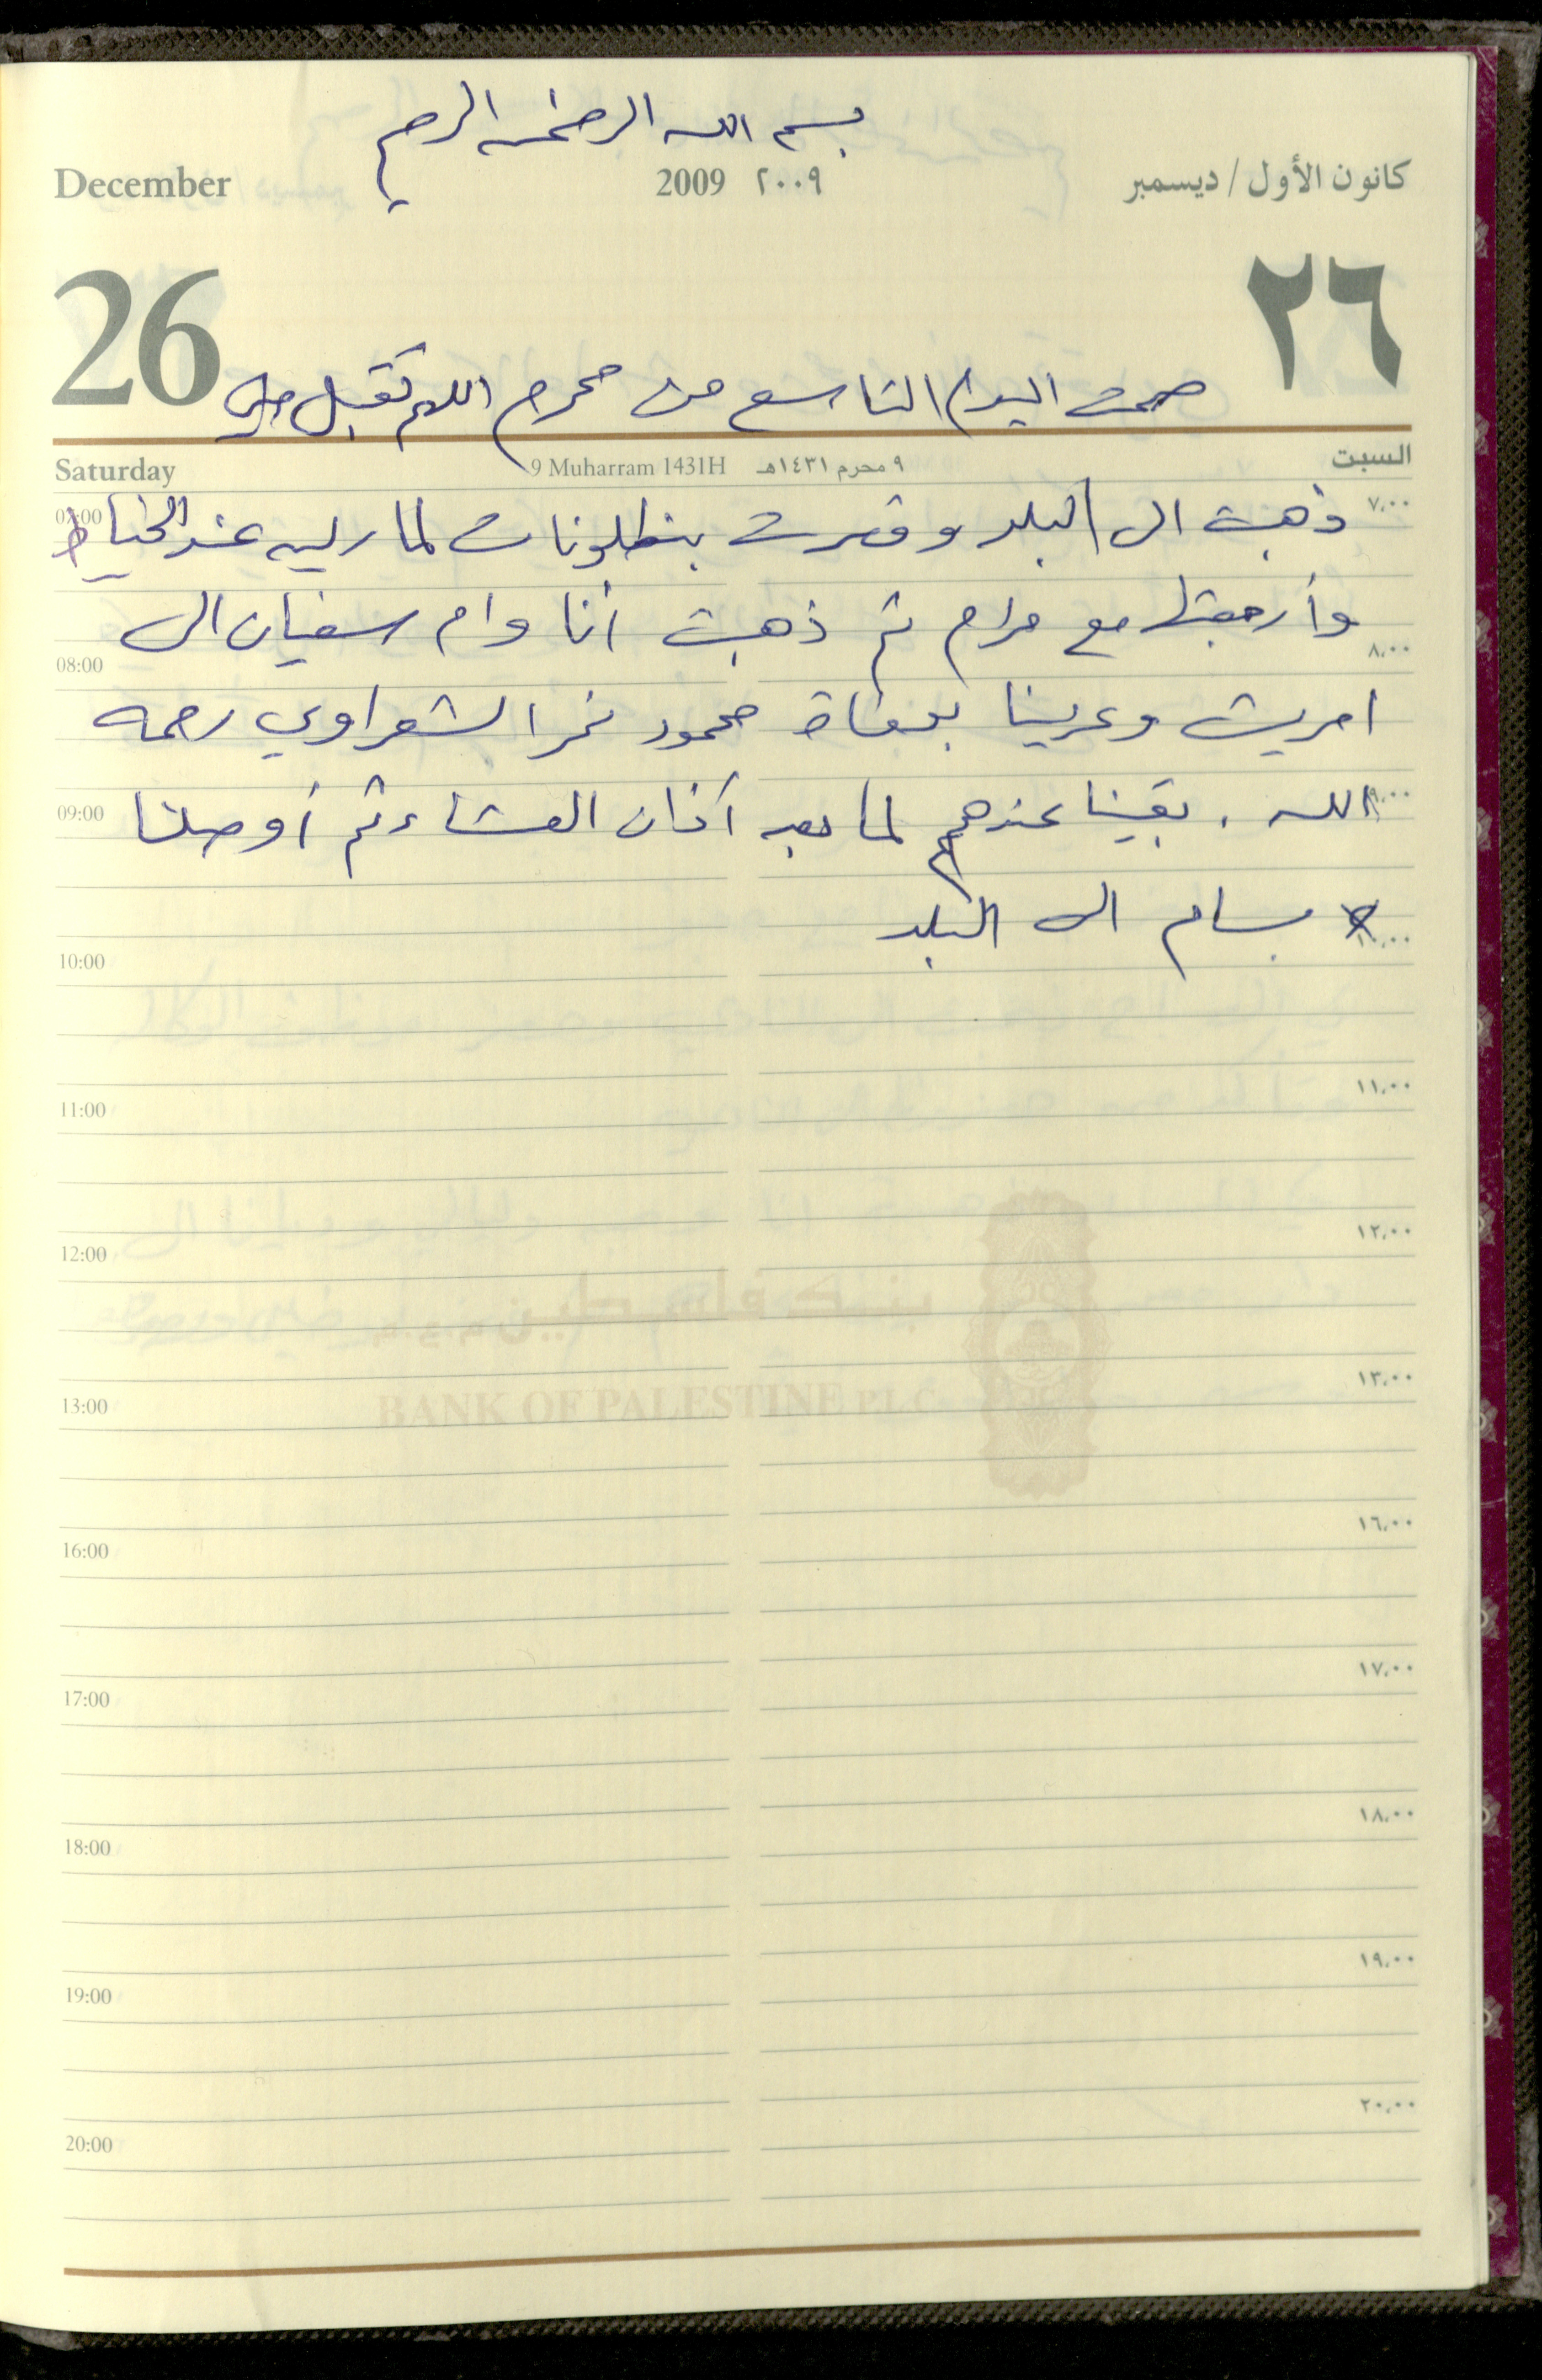 بسم الله الرحمن الرحيم
December 2009 ٢٠٠٩ كانون الأول / ديسمبر
26 ٢٦
صمت اليوم التاسع من محرم اللهم تقبل مني
Saturday 9 Muharram 1431H ٩ محرم ١٤٣١هـ السبت
07:00 ٧,٠٠
ذهبت الى البلد وقصرت بنطلونات لماريه عند الخياط
وأرجعتها مع مرام ثم ذهبت أنا وام سفيان الى
08:00 ٨,٠٠
امريش وعزينا بوفاة محمود نمر الشعراوي رحمه
09:00 ٩,٠٠
الله . بقينا عندهم لما بعد آذان العشاء ثم أوصلنا
بسام الى البلد
10:00 ١٠,٠٠
11:00 ١١,٠٠
12:00 ١٢,٠٠
بنك فلسطين م.ع.م
BANK OF PALESTINE P.L.C
13:00 ١٣,٠٠
16:00 ١٦,٠٠
17:00 ١٧,٠٠
18:00 ١٨,٠٠
19:00 ١٩,٠٠
20:00 ٢٠,٠٠